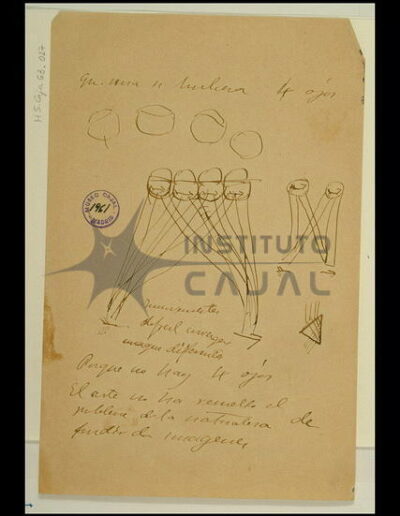 H S. Caja 63, 027
si hubiera 4 ojos
MUSEO CAJAL
1961
MADRID
INSTITUTO
CAJAL
difícil
imagen
Porque no hay 4 ojos
El arte no ha resuelto el
problema de la naturaleza de
fundir dos imagenes